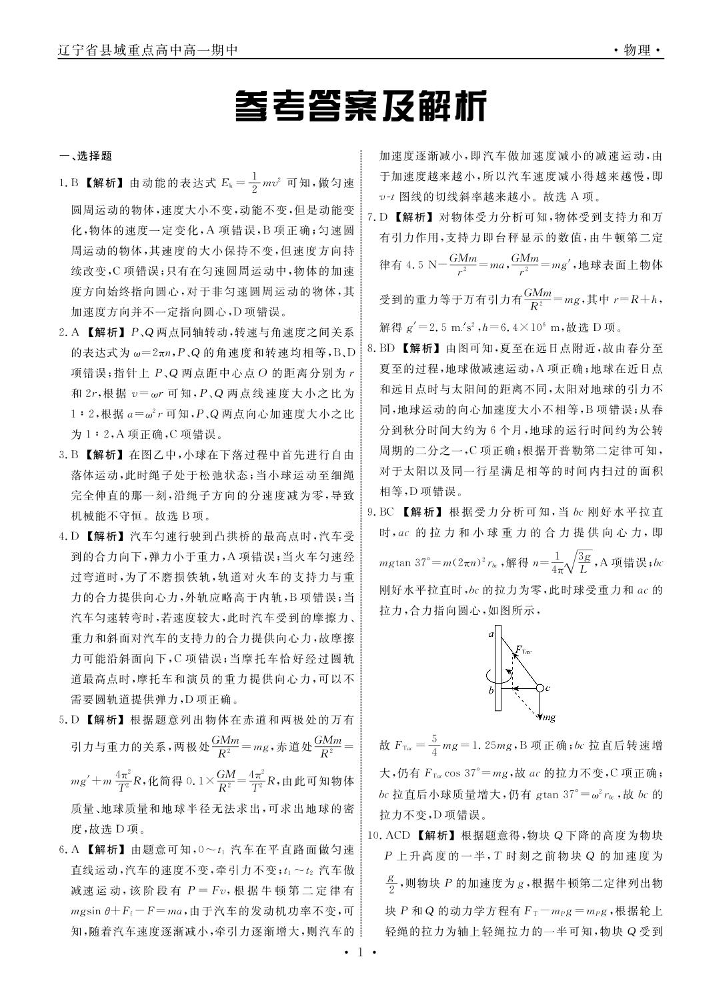 辽宁省县域重点高中高一期中
·物理·
参考答案及解析
一、选择题
1. B 【解析】由动能的表达式 Eₖ=1/2 mv² 可知,做匀速
圆周运动的物体,速度大小不变,动能不变,但是动能变
化,物体的速度一定变化,A项错误,B项正确;匀速圆
周运动的物体,其速度的大小保持不变,但速度方向持
续改变,C项错误;只有在匀速圆周运动中,物体的加速
度方向始终指向圆心,对于非匀速圆周运动的物体,其
加速度方向并不一定指向圆心,D项错误。
2. A 【解析】P、Q两点同轴转动,转速与角速度之间关系
的表达式为 ω=2πn,P、Q的角速度和转速均相等,B、D
项错误;指针上 P、Q两点距中心点 O 的距离分别为 r
和 2r,根据 v=ωr 可知,P、Q 两点线速度大小之比为
1∶2,根据 a=ω²r 可知,P、Q两点向心加速度大小之比
为 1∶2,A项正确,C项错误。
3. B 【解析】在图乙中,小球在下落过程中首先进行自由
落体运动,此时绳子处于松弛状态;当小球运动至细绳
完全伸直的那一刻,沿绳子方向的分速度减为零,导致
机械能不守恒。故选B项。
4. D 【解析】汽车匀速行驶到凸拱桥的最高点时,汽车受
到的合力向下,弹力小于重力,A项错误;当火车匀速经
过弯道时,为了不磨损铁轨,轨道对火车的支持力与重
力的合力提供向心力,外轨应略高于内轨,B项错误;当
汽车匀速转弯时,若速度较大,此时汽车受到的摩擦力、
重力和斜面对汽车的支持力的合力提供向心力,故摩擦
力可能沿斜面向下,C项错误;当摩托车恰好经过圆轨
道最高点时,摩托车和演员的重力提供向心力,可以不
需要圆轨道提供弹力,D项正确。
5. D 【解析】根据题意列出物体在赤道和两极处的万有
引力与重力的关系,两极处 GMm/R²=mg,赤道处 GMm/R²=
mg′+m 4π²/T² R,化简得 0.1×GM/R²=4π²/T² R,由此可知物体
质量、地球质量和地球半径无法求出,可求出地球的密
度,故选D项。
6. A 【解析】由题意可知,0~t₁ 汽车在平直路面做匀速
直线运动,汽车的速度不变,牵引力不变;t₁~t₂ 汽车做
减速运动,该阶段有 P=Fv,根据牛顿第二定律有
mgsin θ+Ff-F=ma,由于汽车的发动机功率不变,可
知,随着汽车速度逐渐减小,牵引力逐渐增大,则汽车的
加速度逐渐减小,即汽车做加速度减小的减速运动,由
于加速度越来越小,所以汽车速度减小得越来越慢,即
v-t 图线的切线斜率越来越小。故选A项。
7. D 【解析】对物体受力分析可知,物体受到支持力和万
有引力作用,支持力即台秤显示的数值,由牛顿第二定
律有 4.5 N-GMm/r²=ma,GMm/r²=mg′,地球表面上物体
受到的重力等于万有引力有 GMm/R²=mg,其中 r=R+h,
解得 g′=2.5 m/s²,h=6.4×10⁶ m,故选D项。
8. BD 【解析】由图可知,夏至在远日点附近,故由春分至
夏至的过程,地球做减速运动,A项正确;地球在近日点
和远日点时与太阳间的距离不同,太阳对地球的引力不
同,地球运动的向心加速度大小不相等,B项错误;从春
分到秋分时间大约为6个月,地球的运行时间约为公转
周期的二分之一,C项正确;根据开普勒第二定律可知,
对于太阳以及同一行星满足相等的时间内扫过的面积
相等,D项错误。
9. BC 【解析】根据受力分析可知,当 bc 刚好水平拉直
时,ac 的拉力和小球重力的合力提供向心力,即
mgtan 37°=m(2πn)²r_bc,解得 n=1/4π √(3g/L),A项错误;bc
刚好水平拉直时,bc的拉力为零,此时球受重力和 ac 的
拉力,合力指向圆心,如图所示,
a
F_Tac
b
c
mg
故 F_Tac=5/4 mg=1.25mg,B项正确;bc 拉直后转速增
大,仍有 F_Tac cos 37°=mg,故 ac 的拉力不变,C项正确;
bc 拉直后小球质量增大,仍有 gtan 37°=ω²r_bc,故 bc 的
拉力不变,D项错误。
10. ACD 【解析】根据题意得,物块 Q 下降的高度为物块
P 上升高度的一半,T 时刻之前物块 Q 的加速度为
g/2,则物块 P 的加速度为 g,根据牛顿第二定律列出物
块 P 和 Q 的动力学方程有 F_T-m_Pg=m_Pg,根据轮上
轻绳的拉力为轴上轻绳拉力的一半可知,物块 Q 受到
·1·